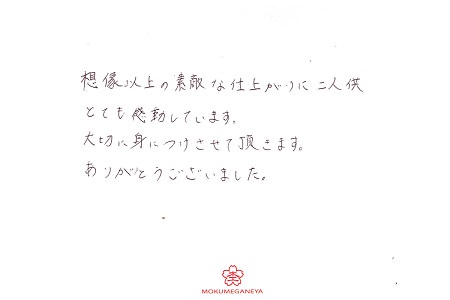 想像以上の素敵な仕上がりに二人供
とても感動しています。
大切に身につけさせて頂きます。
ありがとうございました。
MOKUMEGANEYA